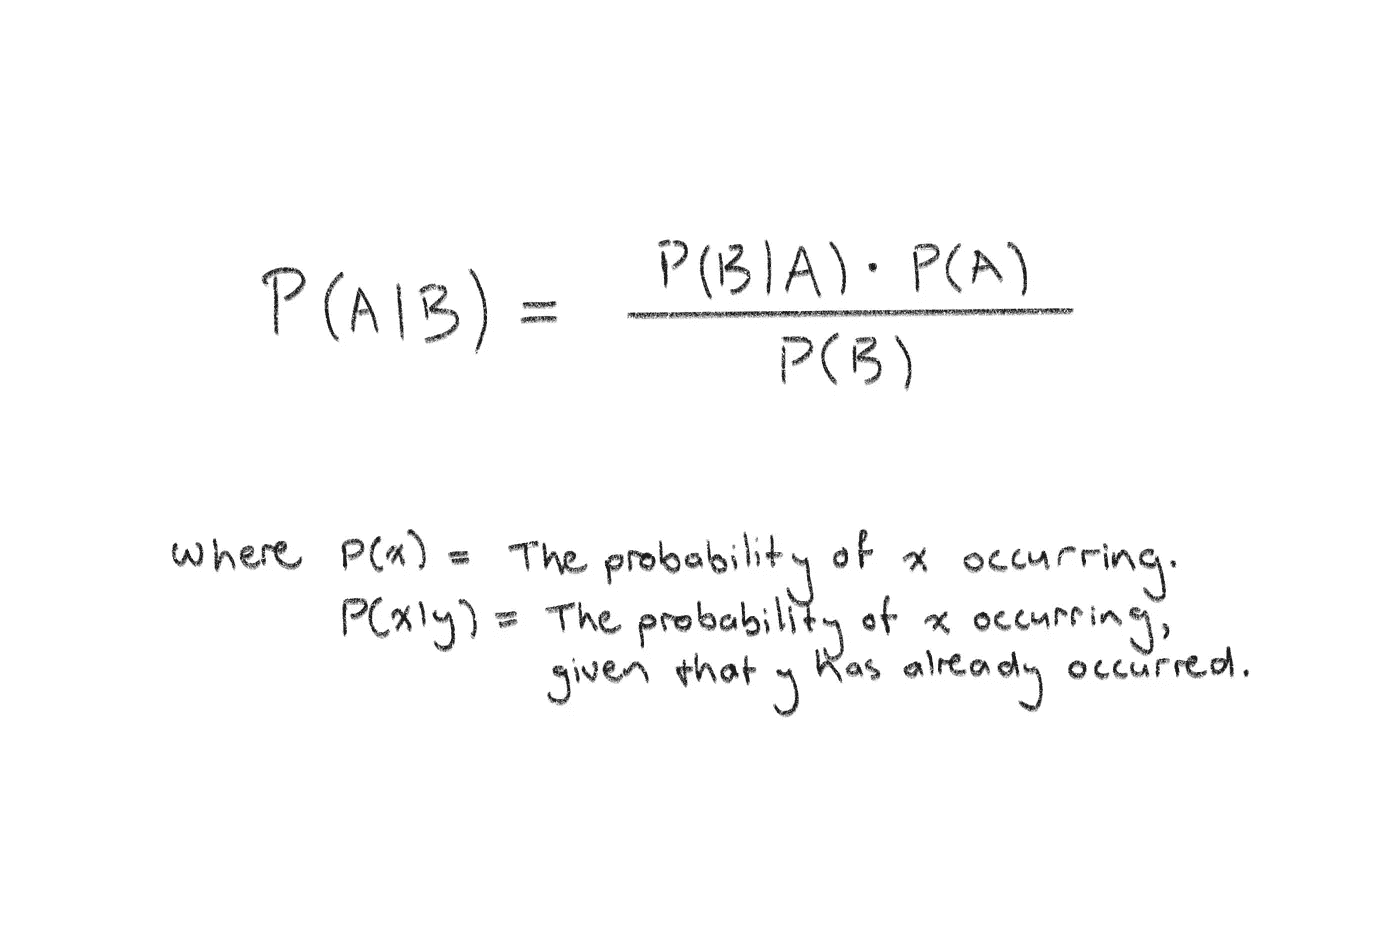 P(A|B) = P(B|A) · P(A) / P(B)
where P(x) = The probability of x occurring.
P(x|y) = The probability of x occurring,
given that y has already occurred.